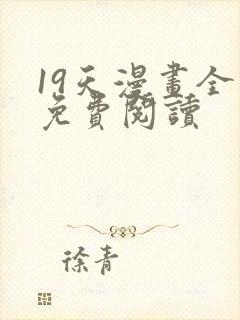 19天漫畫全
免費閱讀
徐青